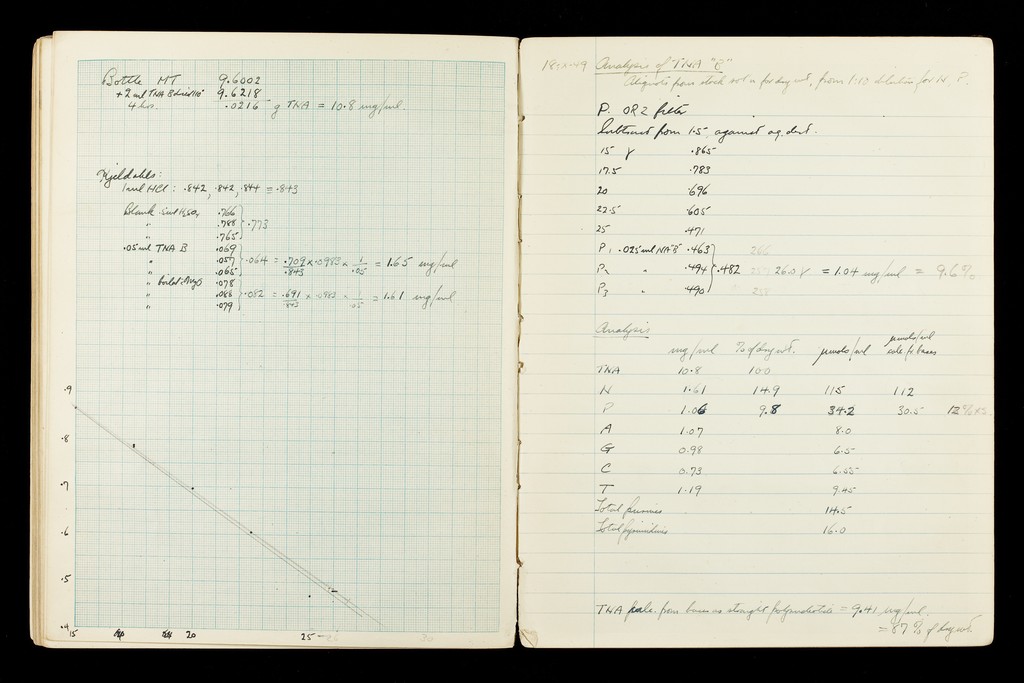 Bottle MT 9.6002
+ 2 ml TNA B dried 110° 9.6218
4 hrs. .0216 g TNA = 10.8 mg/ml
Kjeldahls:
1 ml HCl : .842, .842, .844 = .843
Blank 5ml H2SO4 .766
" .788 } .773
" .765
.05 ml TNA B .069
" .057 } .064 = .709/.843 × .0983 × 1/.05 = 1.65 mg/ml
" .065
" .078
" .088 } .082 = .691/.843 × .0983 × 1/.05 = 1.61 mg/ml
" .079
.9
.8
.7
.6
.5
.4
15 20 25 30
Analysis of TNA "B"
Aliquots from stock for dry wt, from 1:10 dilution for N, P.
P. OR2 filter
Subtract from 1.5 against aq. dest.
15 γ .865
17.5 .783
20 .696
22.5 .605
25 .471
P1 .025 ml NA"B" .463
P2 " .494 } .482 26.0 γ = 1.04 mg/ml = 9.6%
P3 " .490
Analysis
mg/ml % of dry wt. μmols/ml μmols/ml calc. fr bases
TNA 10.8 100
N 1.61 14.9 115 112
P 1.06 9.8 34.2 30.5 12% xs.
A 1.07 8.0
G 0.98 6.5
C 0.73 6.55
T 1.19 9.45
Total purines 14.5
Total pyrimidines 16.0
TNA calc. from bases as straight polynucleotide = 9.41 mg/ml.
= 87% of dry wt.